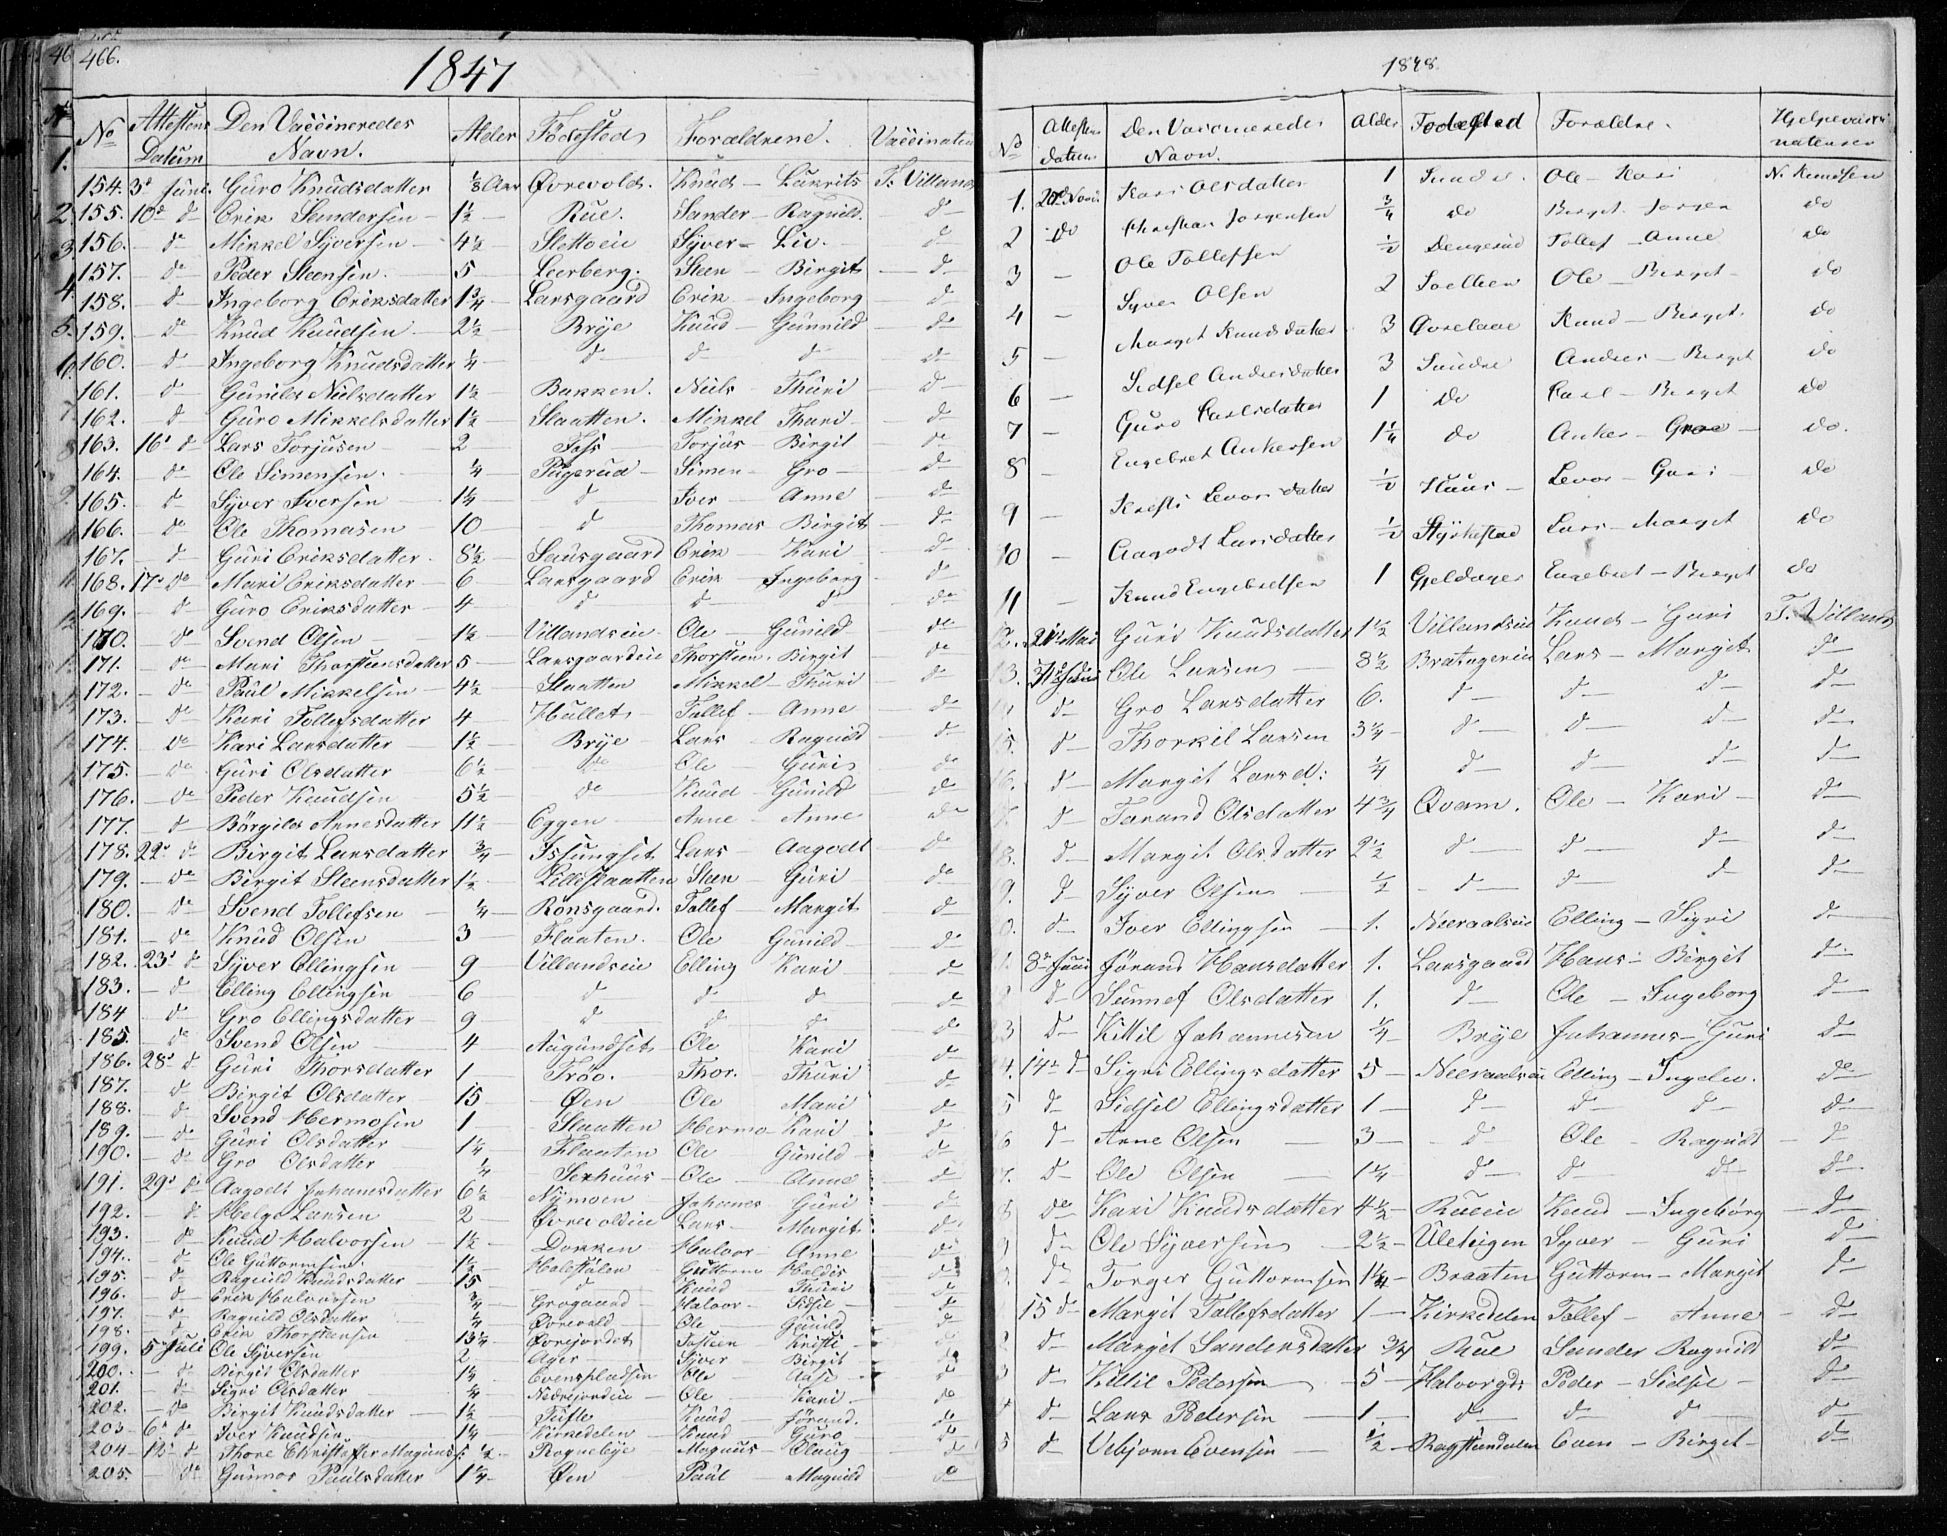 466.
1847
No Attestens Datum Den Vaccineredes Navn. Alder Födested Forældrene. Vaccinateur
154. 3d Juni. Guro Knudsdatter 1/8 Aar Övrevold. Knud — T. Villand
155. 10d d Erik Sandersen 1½ Rue. Sander — Ragnild. d
156. d Mikkel Syversen 4½ Slettoen Syver — Liv. d
157. d Peder Steensen. 5 Leerberg. Steen — Birgit d
158. d Ingeborg Eriksdatter 1¾ Larsgaard Erik — Ingeborg d
159. d Knud Knudsen 2½ Brye Knud — Gunnild d
160. d Ingeborg Knudsdatter ¼ d d d d
161. d Gunild Nielsdatter 1½ Bakken. Niels — Thuri d
162. d Guro Mikkelsdatter 1½ Slaatten. Mikkel Thuri d
163. 16d d Lars Torjusen 2 Torjus — Birgit d
164. d Ole Simensen. ¼ Pugerud Simen — Gro d
165. d Syver Iversen 1¼ d Iver — Anne d
166. d Ole Thomasen 10 d Thomas Birgit d
167. d Guri Eriksdatter. 8½ Sausgaard Erik Kari d
168. 17d do Mari Eriksdatter 6 Larsgaard Erik — Ingeborg d
169. d Guro Eriksdatter 4 d d d do
170. do Svend Olsen 1½ Villandseie. Ole — Gunild do
171. do Mari Thorsteensdatter 5 Larsgaardeie Thorsteen. Birgit do
172. do Paul Mikkelsen 4½ Slaatten Mikkel — Thuri d
173. do Kari Tollefsdatter 4 Hullet Tollef — Anne d
174. do Kari Larsdatter 1½ Brye Lars — Ragnild d
175. do Guri Olsdatter 6½ do Ole — Guri do
176. do Peder Knudsen 5½ do Knud — Gunild d
177. d Börgild Arnesdatter 11½ Eggen Arne — Anne do
178. 22d d Birgit Larsdatter ¾ Lars — Aagodt d
179. do Birgit Steensdatter 1½ Lilleslaatten Steen — Guri do
180. do Svend Tollefsen ¼ Rönsgaard. Tollef — Margit d
181. do Knud Olsen 3 Flaaten. Ole Gunild d
182. 23d d Syver Ellingsen 9 Villandseie Elling Kari d
183. d Elling Ellingsen 6 d d d do
184 d Gro Ellingsdatter 9 d d d do
185. do Svend Olsen 4 Augundset Ole Kari d
186. 28d d Guri Thorsdatter 1 Tröo. Thor. Thuri d
187. d Birgit Olsdatter 15 Öen Ole Mari d
188. d Svend Hermosen 1 Slaatten Hermo Kari d
189. d Guri Olsdatter 1¼ Flaaten Ole Gunild d
190. d Gro Olsdatter ¼ Ole — Anne d
191. 29d do Aagodt Johanesdatter 6½ Nymoen Johanes Guri d
192. d Helge Larsen 2 Övrevoldeie Lars — Margit d
193. do Knud Halvorsen 1½ Dokken Halvor — Anne do
194. d Ole Guttormsen. 1½ Guttorm Haldis d
195. d Ragnild Knudsdatter 15 d Knud Thuri d
196. d Erik Halvorsen ¾ Grogaard Halvor — Sidsel d
197. d Ragnild Olsdatter ¼ Övrevold Ole Gunild d
198. d Erik Thorstensen 13¼ Övrejordet Kristi d
199. 5 Juli Ole Syversen 2 Ager Syver Birgit d
200. d Birgit Olsdatter 1¼ Evenspladsen Ole Aase d
201. d Sigri Olsdatter ¼ Nedrejordeie Ole Kari d
202. do Birgit Knudsdatter 1½ Tufte Knud Jörand. do
203 6d do Iver Knudsen 1¼ Kirkedelen Knud Guro d
204 d Thore Christoffer Magnus ½ Rognebye Magnus Olaug d
205. do Gunnor Paulsdatter 1¼ Öen Paul Magnild do
1848.
No Attestens datum Den Vaccinerede Navn. Alder Fødested Forældre.
1. Kari Olsdatter 1 Sundre. Ole — Kari N. Knudsen
2 do Christian Jörgensen ¾ do Berget — Jørgen do
3 — Ole Tollefsen ½ Tollef — Anne do
4 — Syver Olsen 2 Ole — Berget do
5 — Marget Knudsdatter 3 Knud — Berget do
6 — Sidsel Andersdatter 3 Sundre Anders — Berget do
7 — Guro Carlsdatter 1 do Carl — Berget do
8 — Engebret Ankersen 1¼ do Anker — Groe do.
9 — Kristi Levorsdatter ½ Huus — Levor — Guri do
10 — Aagodt Larsdatter ½ Styrkestad Lars — Marget do
11 — Knud Engebretsen 1 Gjeldager Engebret — Berget do
21 Mai Guri Knudsdatter 1½ Villandseie Knud — Guri T. Villand
13. 31 Ole Larsen 8½ Lars — Margit d
d Gro Larsdatter 6. d d d d
d Thorkil Larsen 3¼ d d d d
d Margit Larsd: ¼ d d d d
d Tarand Olsdatter 4¾ Qvam. Ole — Kari d
d Margit Olsdatter 2½ d d d d
d Syver Olsen ½ d d d d
d Iver Ellingsen 1. Neeraalseie Elling — Sigri d
8d Juni Jörand Hansdatter 1. Larsgaard Hans — Birgit d
d Sünnef Olsdatter 1. d Ole — Ingeborg d
d Kittil Johannesen ¼ Brye Johannes — Guri d
14d d Sigri Ellingsdatter 5 Neeraalseie Elling — do
d Sidsel Ellingsdatter 1 d d d d
d Arne Olsen 3 d Ole — Ragnild d
d Ole Olsen 1¼ d d d d
do Kari Knudsdatter 4½ Rueeie Knud — Ingebörg d
d Ole Syversen 2½ Ulehigen Syver — Guri d
d Torger Guttormsen 1¼ Braaten Guttorm — Margit d
15 d Margit Tollefsdatter 1 Kirkedelen Tollef — Anne d
d Margit Sandersdatter ¾ Rue Sander Ragnild d
d Kittil Pedersen 5 Halvorgd Peder — Sidsel d
d Lars Pedersen 1 d d d d
d Vebjörn Evensen ½ Even — Birget d